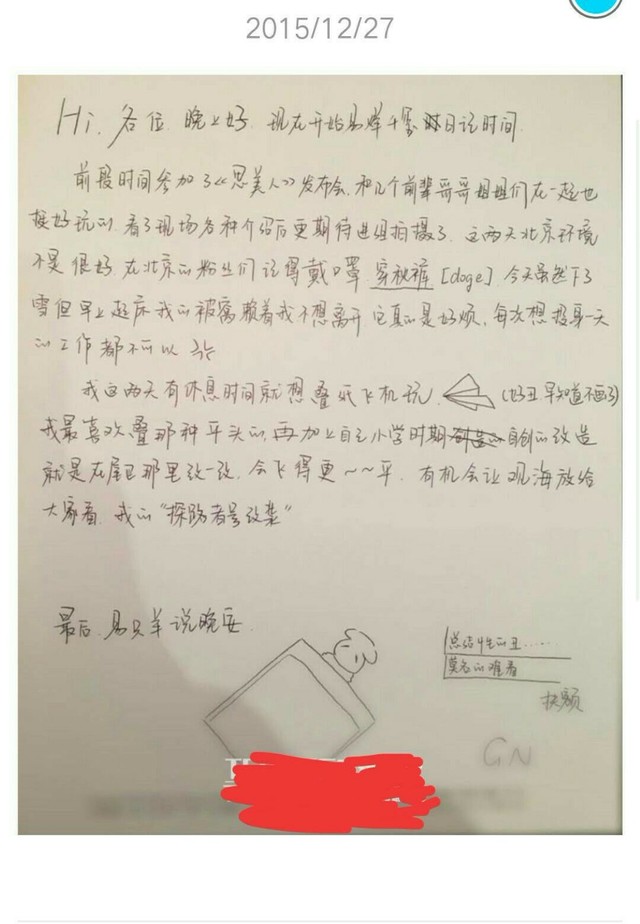 2015/12/27
Hi. 各位 晚上好. 现在开始易烊千玺日记时间
前段时间参加了《思美人》发布会. 和几个前辈哥哥姐姐们在一起也
挺好玩的. 看了现场各种介绍后更期待进组拍摄了. 这两天北京环境
不是很好. 在北京的粉丝们记得戴口罩 穿秋裤 [doge]. 今天虽然下了
雪但早上起床我的被窝赖着我不想离开 它真的是好烦. 每次想投身一天
的工作都不可以
我这两天有休息时间就想叠纸飞机玩. (好丑 早知道不画了)
我最喜欢叠那种平头的. 再加上自己小学时期 自创的改造
就是在尾巴那里改一改. 会飞得更~~平. 有机会让观海放给
大家看. 我的"探防者号改装"
最后. 易只羊说晚安.
总结性的丑......
莫名的难看
扶额
GN